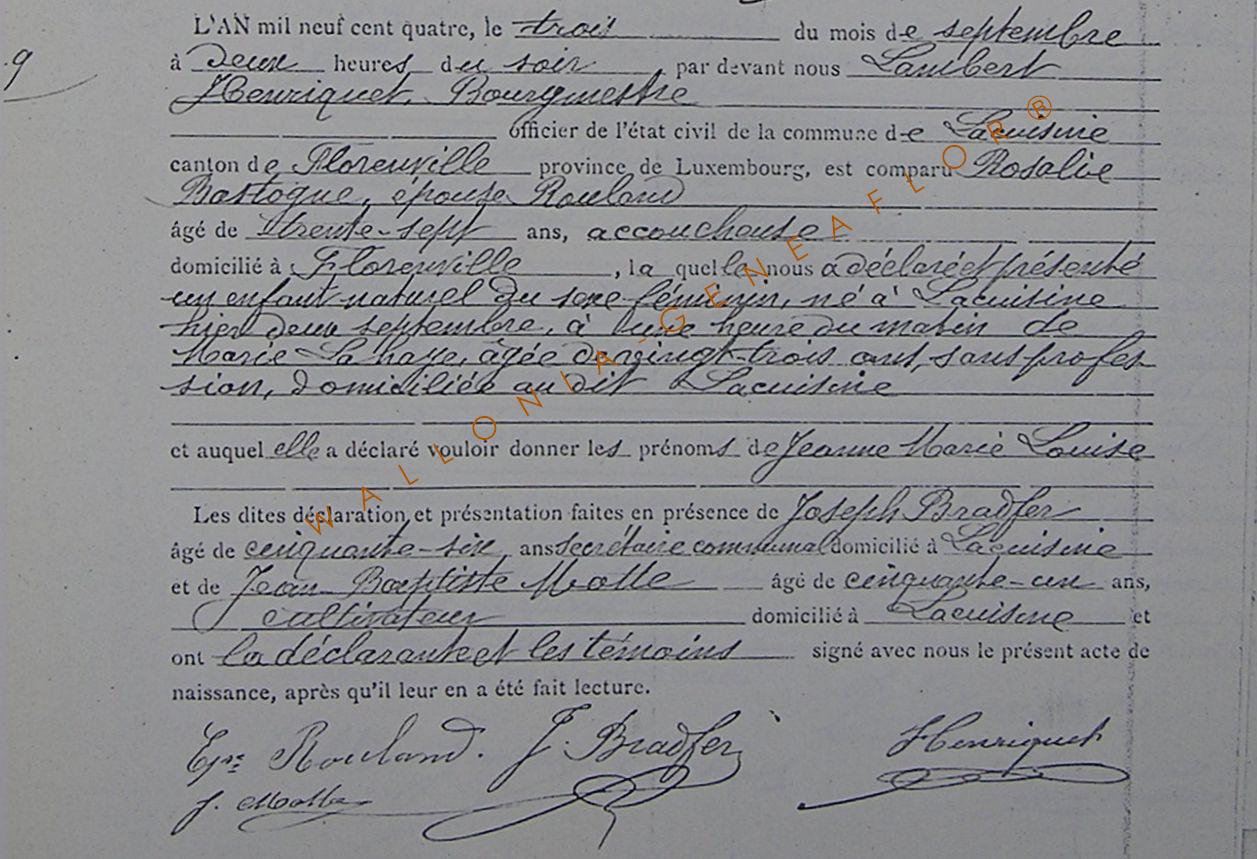 L'AN mil neuf cent quatre, le trois du mois de septembre
9
à deux heures du soir par devant nous Lambert
Henriquet, Bourgmestre
officier de l'état civil de la commune de Lacuisine
canton de Florenville province de Luxembourg, est comparu Rosalie
Bastogne, épouse Rouland
âgé de trente-sept ans, accoucheuse
domicilié à Florenville, la quelle nous a déclaré et présenté
un enfant naturel du sexe féminin, né à Lacuisine
hier deux septembre, à l'une heure du matin de
Marie Lahaye, âgée de vingt-trois ans, sans profes-
sion, domiciliée au dit Lacuisine
et auquel elle a déclaré vouloir donner les prénoms de Jeanne Marie Louise
Les dites déclaration et présentation faites en présence de Joseph Bradfer
âgé de cinquante-six ans secrétaire communal domicilié à Lacuisine
et de Jean Baptiste Molle âgé de cinquante-un ans,
cultivateur domicilié à Lacuisine et
ont la déclarante et les témoins signé avec nous le présent acte de
naissance, après qu'il leur en a été fait lecture.
Rouland. J. Bradfer Henriquet
J. Molle
WALLONIA-GENEAFLOR®